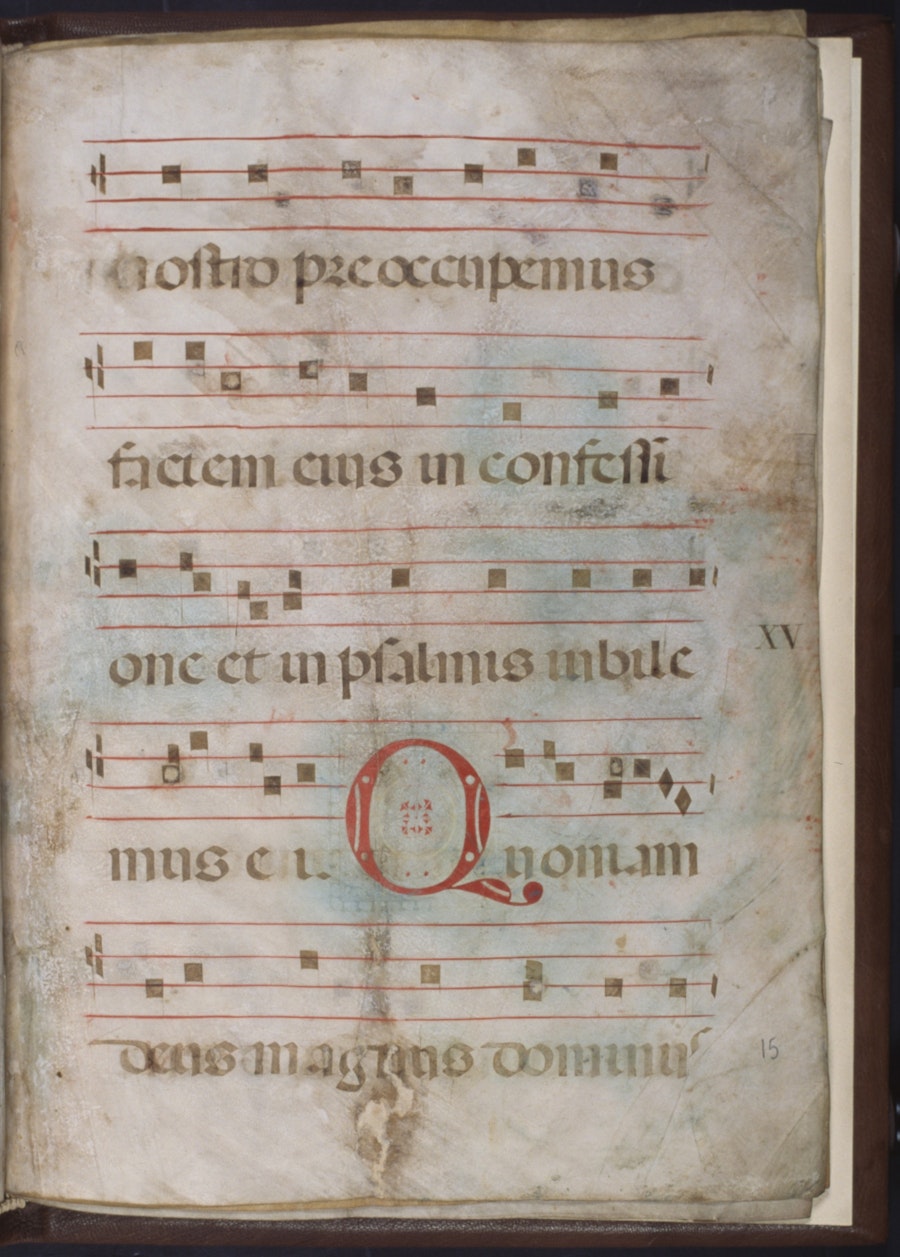 nostro preoccupemus
faciem eius in confessi
one et in psalmis iubile
XV
mus ei. Quoniam
deus magnus dominus
15